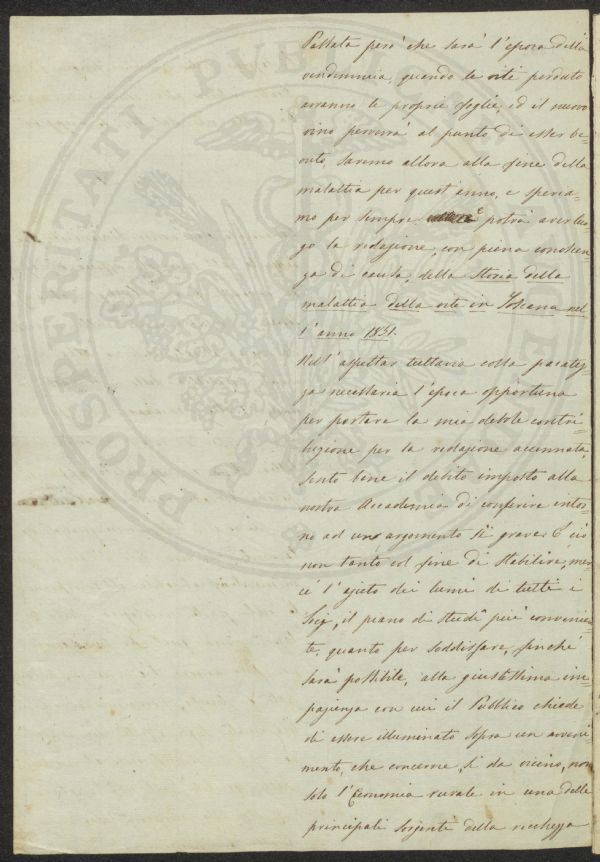 Passata però che sarà l'epoca della
vendemmia, quando le viti perduto
avranno le proprie foglie, ed il nuovo
vino perverrà al punto di esser be=
vuto, saremo allora alla fine della
malattia per quest'anno, e speria=
mo per sempre e potrà aver luo=
go la redazione, con piena conoscen=
za di causa, della Storia della
malattia della vite in Toscana nel
l'anno 1851.
Nell'aspettar tuttavia colla pacatez=
za necessaria l'epoca opportuna
per portare la mia debole contri=
buzione per la redazione accennata,
sento bene il debito imposto alla
nostra Accademia di conferire intor=
no ad un argomento sì grave. E ciò
non tanto col fine di stabilire, mer=
cè l'ajuto dei lumi di tutti i
Socj, il piano di studî più convenien=
te, quanto per soddisfare, finchè
sarà possibile, alla giustissima im=
pazienza con cui il Pubblico chiede
di essere illuminato sopra un avveni=
mento, che concerne, sì da vicino, non
solo l'Economia rurale in una delle
principali sorgenti della ricchezza
PROSPERITATI PUBLICAE